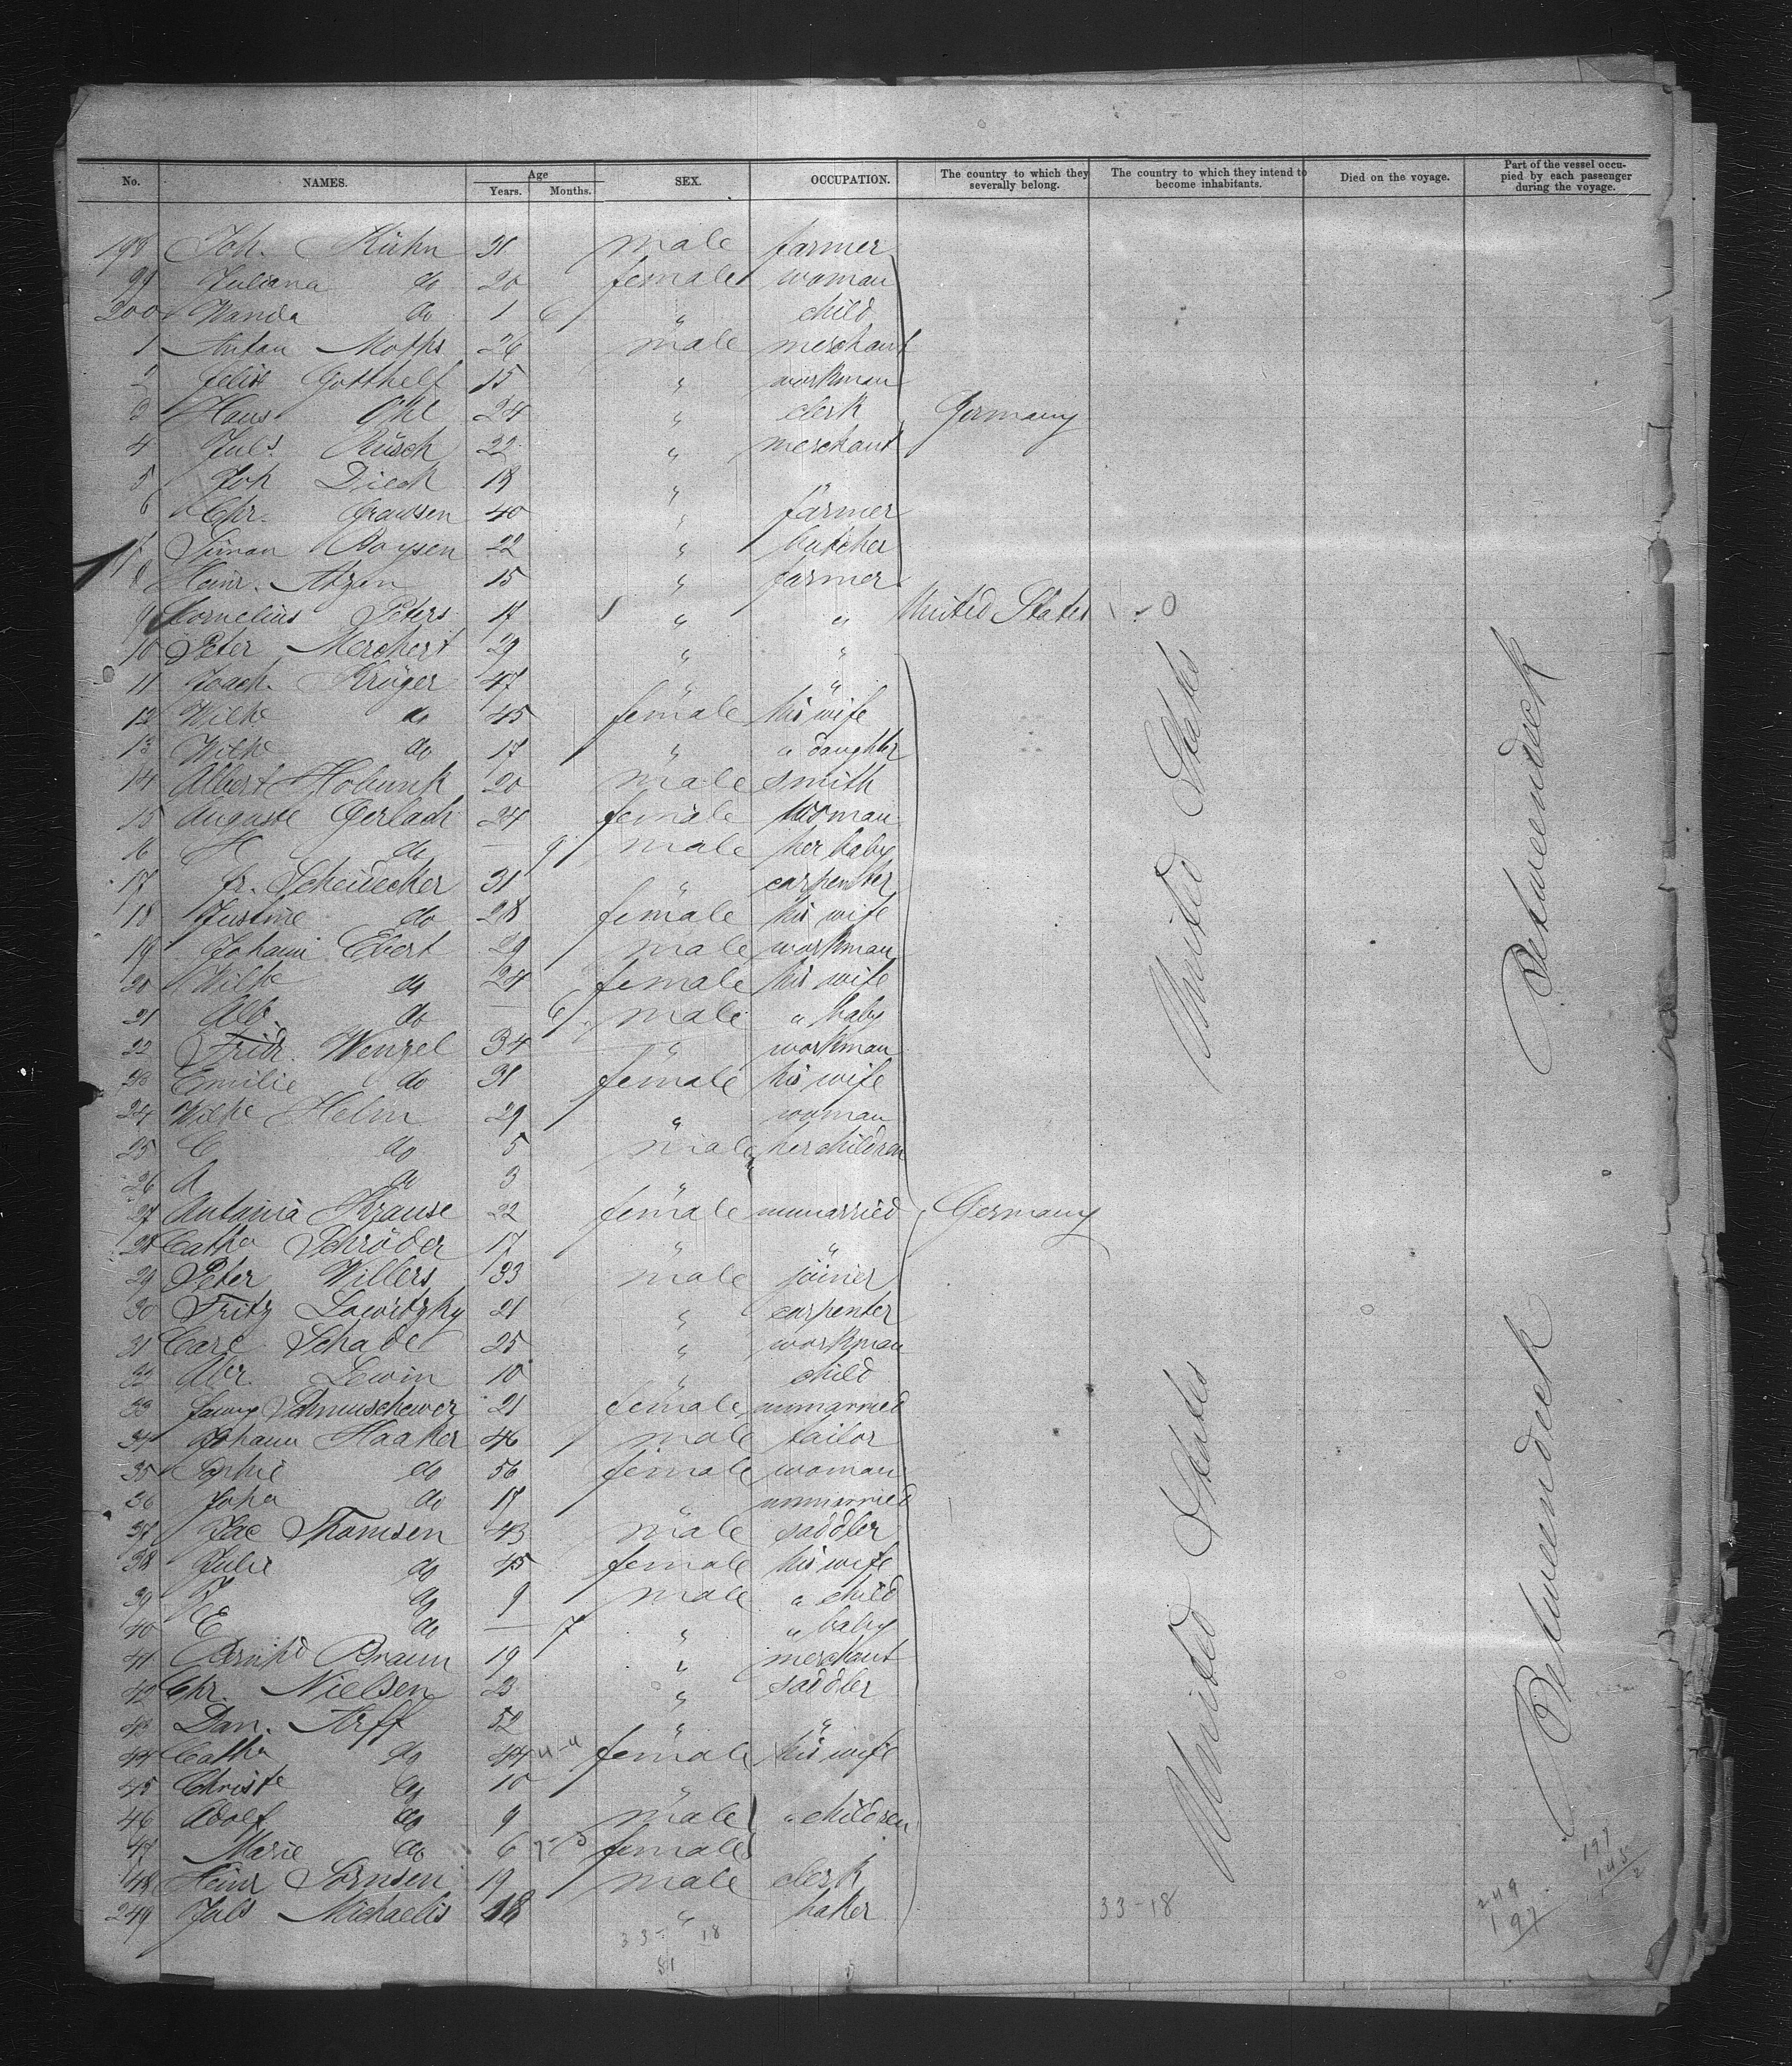 No. NAMES. Age Years. Months. SEX. OCCUPATION. The country to which they severally belong. The country to which they intend to become inhabitants. Died on the voyage. Part of the vessel occupied by each passenger during the voyage.
198 Joh. Kühn 31 male farmer
99 Juliana do 20 female woman
200 Wanda do 1 6 " child
1 Anton 26 male merchant
2 Felix Gotthelf 15 " workman
3 Hans Ohl 24 " clerk Germany
4 Juls. Rüsch 22 " merchant
5 Joh Dieck 19 " "
6 Chr. 40 " farmer
7 Simon Boysen 22 " butcher
8 Heinr. 15 " farmer
9 Cornelius Peters 17 " " United States
10 Peter Merchert 29 " "
11 Joach. Krüger 47 " "
12 Wilhe do 45 female his wife
13 Wilhe do 17 " " daughter
14 Albert 20 male smith
15 Auguste Gerlach 24 female woman
16 H do — 9 male her baby
17 Fr. Scheidecker 31 " carpenter
18 Justine do 28 female his wife
19 Johann Ebert 29 male workman
20 Wilhe do 24 female his wife
21 Alb. do — 6 male " baby
22 Fridr. Wenzel 34 " workman
23 Emilie do 31 female his wife
24 Wilhe Helm 29 " woman
25 C do 5 male her children
26 A do 3 "
27 Antonia Krause 22 female unmarried Germany
28 Catha Schröder 17 " "
29 Peter Willers 33 male joiner
30 Fritz Lowitzky 21 " carpenter
31 Carl Schade 25 " workman
32 Abr. Lewin 10 " child
33 21 female unmarried
34 Johann Haaker 46 male tailor
35 Sophie do 56 female woman
36 Joha do 17 " unmarried
37 Jac Thomsen 43 male saddler
38 Julie do 45 female his wife
39 do 9 male " child
40 E do — 7 " " baby
41 Braun 19 " merchant
42 Chr. Nielsen 23 " saddler
43 Dan. Arff 52 " "
44 Catha do 44 female his wife
45 Christe do 10 "
46 Adolf do 9 male " children
47 Marie do 6 female
48 Heinr Sörnsen 19 male clerk
249 Juls Michaelis 18 " baker
33-18
33- 18
81
United States
United States
Betweendeck
Betweendeck
249
197
197